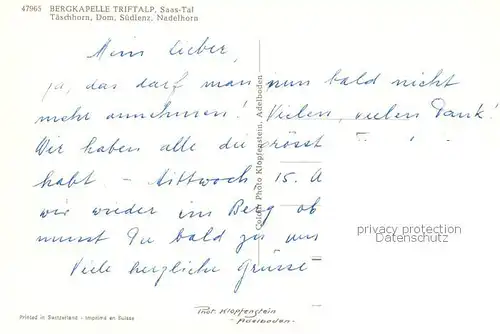 47965 BERGKAPELLE TRIFTALP, Saas-Tal
Täschhorn, Dom, Südlenz, Nadelhorn
Mein lieber,
ja, das darf man nun bald nicht
mehr annehmen! Vielen, vielen Dank!
Wir haben alle die grösst
habt - Mittwoch 15. A
wir wieder im Berg ob
musst Du bald zu uns
Viele herzliche Grüsse
Color Photo Klopfenstein, Adelboden
privacy protection
Datenschutz
Phot. Klopfenstein
- Adelboden -
Printed in Switzerland - Imprimé en Suisse